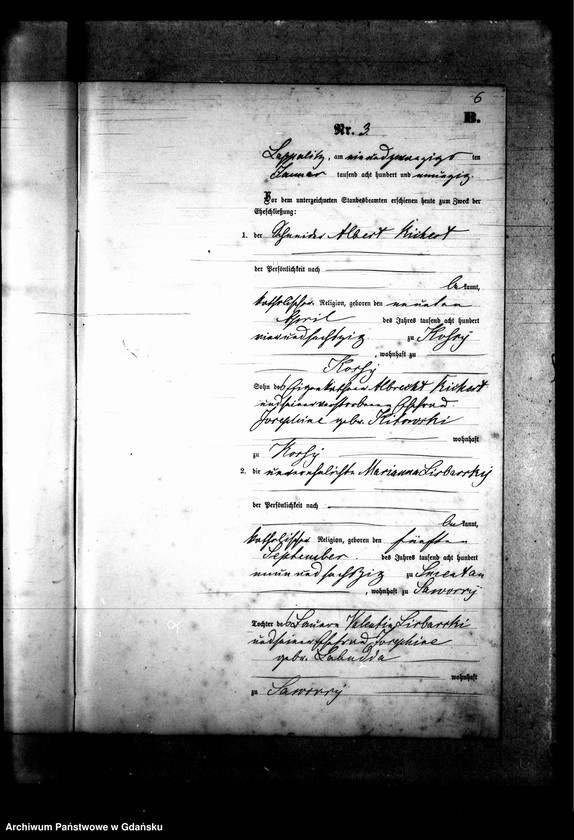 6
B.
Nr. 3.
am vierundzwanzigsten ten
Januar tausend acht hundert und neunzig
Vor dem unterzeichneten Standesbeamten erschienen heute zum Zweck der
Eheschließung:
1. der Schneider Albert Kickert
der Persönlichkeit nach
bekannt,
katholischer Religion, geboren den neunten
April des Jahres tausend acht hundert
vierundsechzig zu
, wohnhaft zu
Sohn des Eigenkäthners Albrecht Kickert
und seiner verstorbenen Ehefrau
Josephine geb. Klikowski
wohnhaft
zu
2. die unverehelichte Marianna Lisbarsky
der Persönlichkeit nach
bekannt,
katholischer Religion, geboren den fünften
September des Jahres tausend acht hundert
neun und sechzig zu Smentau
, wohnhaft zu Saworry
Tochter des Bauern Valentin Lisbarski
und seiner Ehefrau Josephine
geb. Labudda
wohnhaft
zu Saworry
Archiwum Państwowe w Gdańsku